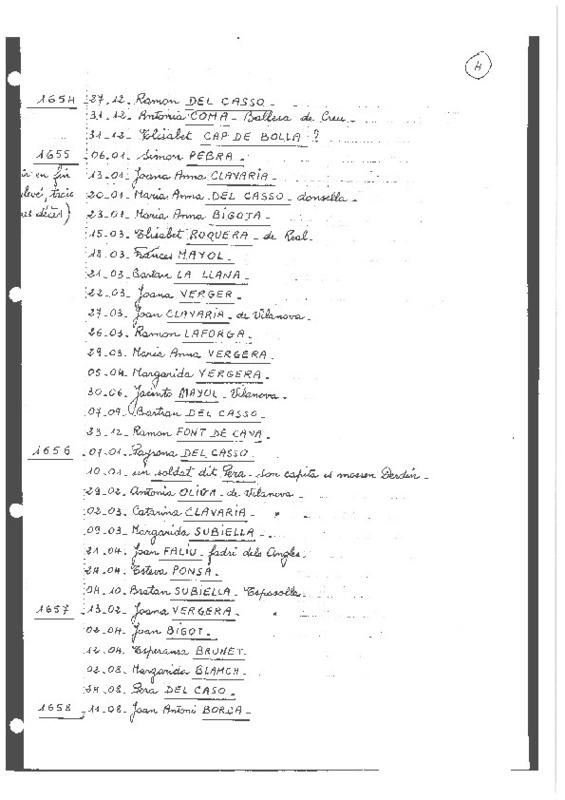 4
1654 27.12. Ramon DEL CASSO.
31.12. Antonia COMA - Ballesa de Creu.
31.12. Elisabet CAP DE BOLLA ?
1655 06.01. Simon PEBRA.
en fin 13.01. Joana Anna CLAVARIA.
20.01. Maria Anna DEL CASSO - donsella.
décès) 23.01. Maria Anna BIGOJA.
15.03. Elisabet ROQUERA - de Real.
18.03. Frances MAYOL.
21.03. LA LLANA.
22.03. Joana VERGER.
27.03. Joan CLAVARIA - de Vilanova.
26.03. Ramon LAFORGA.
29.03. Maria Anna VERGERA.
05.04. Margarida VERGERA.
30.06. Jacinto MAYOL - Vilanova.
07.09. Bartran DEL CASSO.
33.12. Ramon FONT DE CAVA.
1656 07.01. Payrona DEL CASSO.
10.01. un soldat dit Pera - son capita es mossen
29.02. Antonia OLIVA - de Vilanova -
02.03. Catarina CLAVARIA - "
09.03. Margarida SUBIELLA -
21.04. Joan FALIU - fadri dels Angles.
24.04. Esteva PONSA.
04.10. Bratan SUBIELLA - Espusolla.
1657 13.02. Joana VERGERA.
02.04. Joan BIGOT.
12.04. Esperansa BRUNET.
02.08. Margarida BLANCH.
24.08. Pera DEL CASO.
1658 11.08. Joan Antoni BORCA.